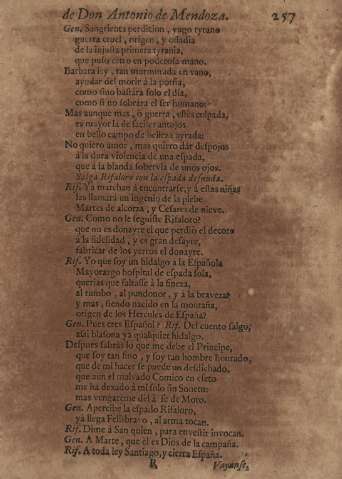 de Don Antonio de Mendoza. 257
Gen. Sangrienta perdicion, yugo tyrano
guerra cruel, origen, y osadia
de la injusta primera tyrania,
que puso cetro en poderosa mano.
Barbara ley, tan murmurada en vano,
ayudar del morir à la porfia,
como sino bastàra solo el dia,
como si no sobrara el ser humano:
Mas aunque mas, ò guerra, estès culpada,
es mayor la de faciles antojos
en bello campo de belleza ayrada:
No quiero amor, mas quiero dàr despojos
à la dura violencia de una espada,
que à la blanda sobervia de unos ojos.
Salga Rifaloro con la espada desnuda.
Rif. Ya marchan à encontrarse, y à estas niñas
les llamarà un ingenio de la plebe
Martes de alcorza, y Cesares de nieve.
Gen. Como no le seguiste Rifaloro?
que no es donayre el que perdiò el decoro
à la fidelidad, y es gran desayre,
fabricar de los yerros el donayre.
Rif. Yo que soy un hidalgo à la Española
Mayorazgo hospital de espada sola,
querias que faltasse à la fineza,
al rumbo, al pundonor, y à la braveza?
y mas, siendo nacido en la montaña,
origen de los Hercules de España?
Gen. Pues eres Español? Rif. Del cuento salgo,
assi blasona ya qualquier hidalgo.
Despues sabràs lo que me debe el Principe,
que soy tan fino, y soy tan hombre honrado,
que de mi hacer se puede un desdichado,
que aun el malvado Comico en efeto
me ha dexado à mi solo sin Soneto:
mas vengarème del à fè de Moro.
Gen. Apercibe la espada Rifaloro,
ya llega Felisbravo, al arma tocan.
Rif. Dime à San quien, para envestir invocan.
Gen. A Marte, que èl es Dios de la campaña.
Rif. A toda ley Santiago, y cierra España.
R Vayanse,